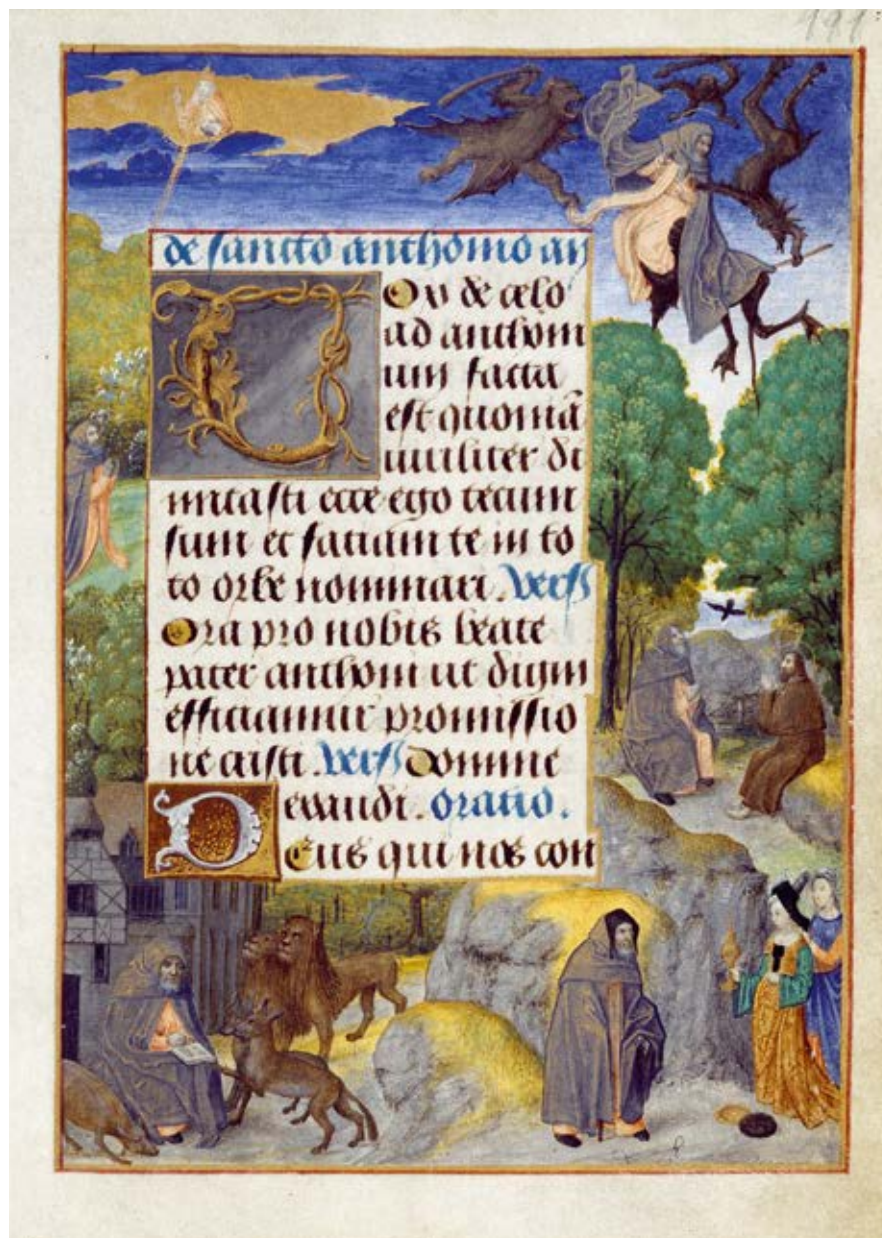 de sancto anthonio an
VOx de celo
ad anthoni
um facta
est quoniā
uiriliter di
micasti ecce ego tecum
sum et faciam te in to
to orbe nominari. Vers
Ora pro nobis beate
pater anthoni ut digni
efficiamur promissio
ne cristi. Vers Domine
exaudi. oratio.
DEus qui nos con